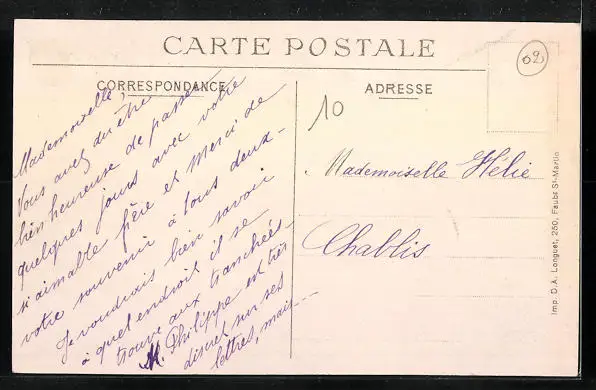 CARTE POSTALE
CORRESPONDANCE
ADRESSE
02
10
Mademoiselle,
Vous avez dû être
bien heureuse de passer
quelques jours avec votre
si aimable frère et merci de
votre souvenir à tous deux -
Je voudrais bien savoir
à quel endroit il se
trouve aux tranchées
M. Philippe est très
discret sur ses
lettres, mais ---
Mademoiselle Hélie
Chablis
Imp. D.A. Longuet, 250, Faubg St-Martin